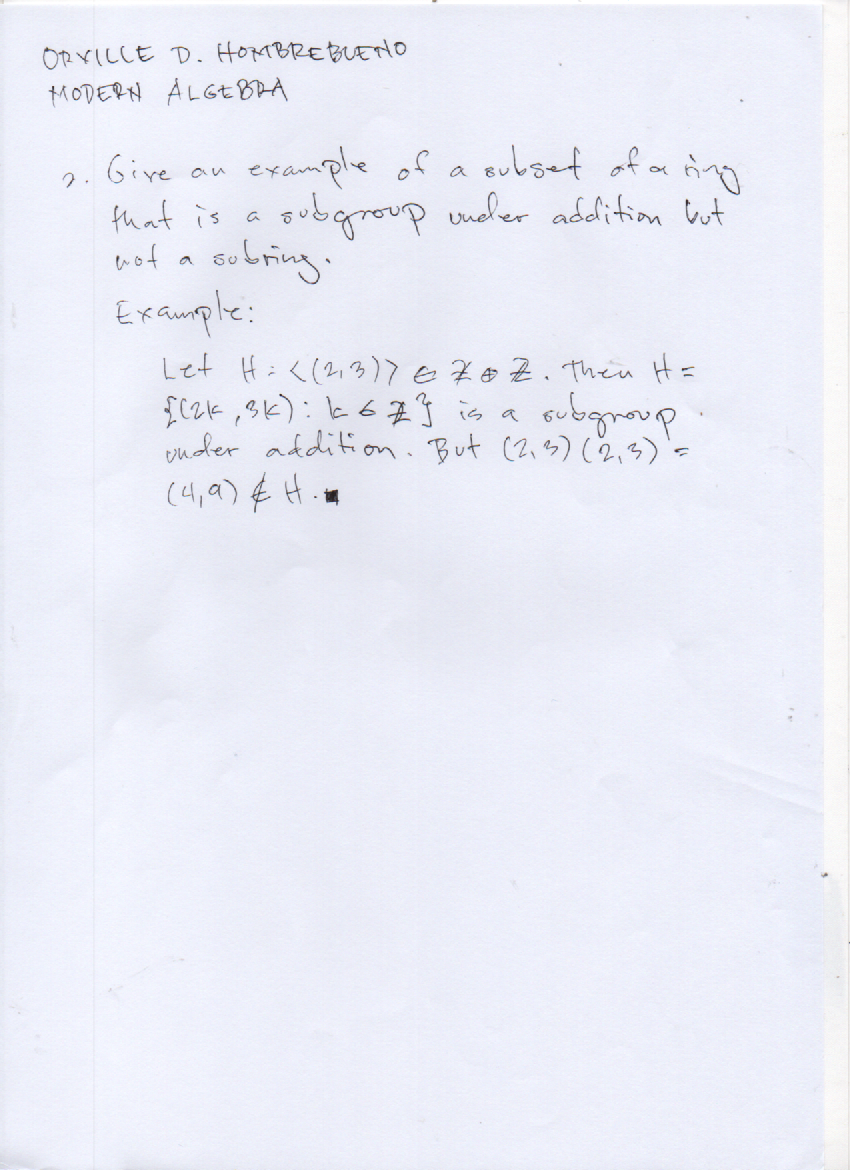 ORVILLE D. HOMBREBUENO
MODERN ALGEBRA
2. Give an example of a subset of a ring
that is a subgroup under addition but
not a subring.
Example:
Let H = <(2,3)> ∈ ℤ ⊕ ℤ. Then H =
{(2k, 3k) : k ∈ ℤ} is a subgroup
under addition. But (2,3)(2,3) =
(4,9) ∉ H. ■